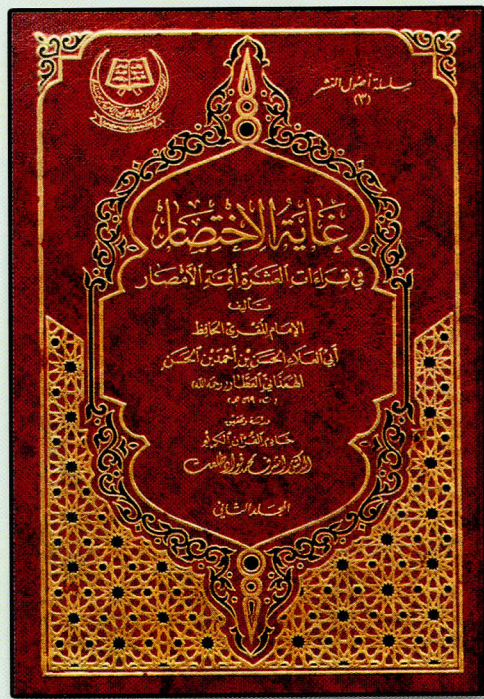 سلسلة أصول النشر
(٣)
غاية الاختصار
في قراءات العشرة أئمة الأمصار
تأليف
الإمام المقرئ الحافظ
أبي العلاء الحسن بن أحمد بن الحسن
الهمذاني العطار (رحمه الله)
(ت ٥٦٩ هـ)
دراسة وتحقيق
خادم القرآن الكريم
الدكتور أشرف محمد فؤاد طلعت
المجلد الثاني